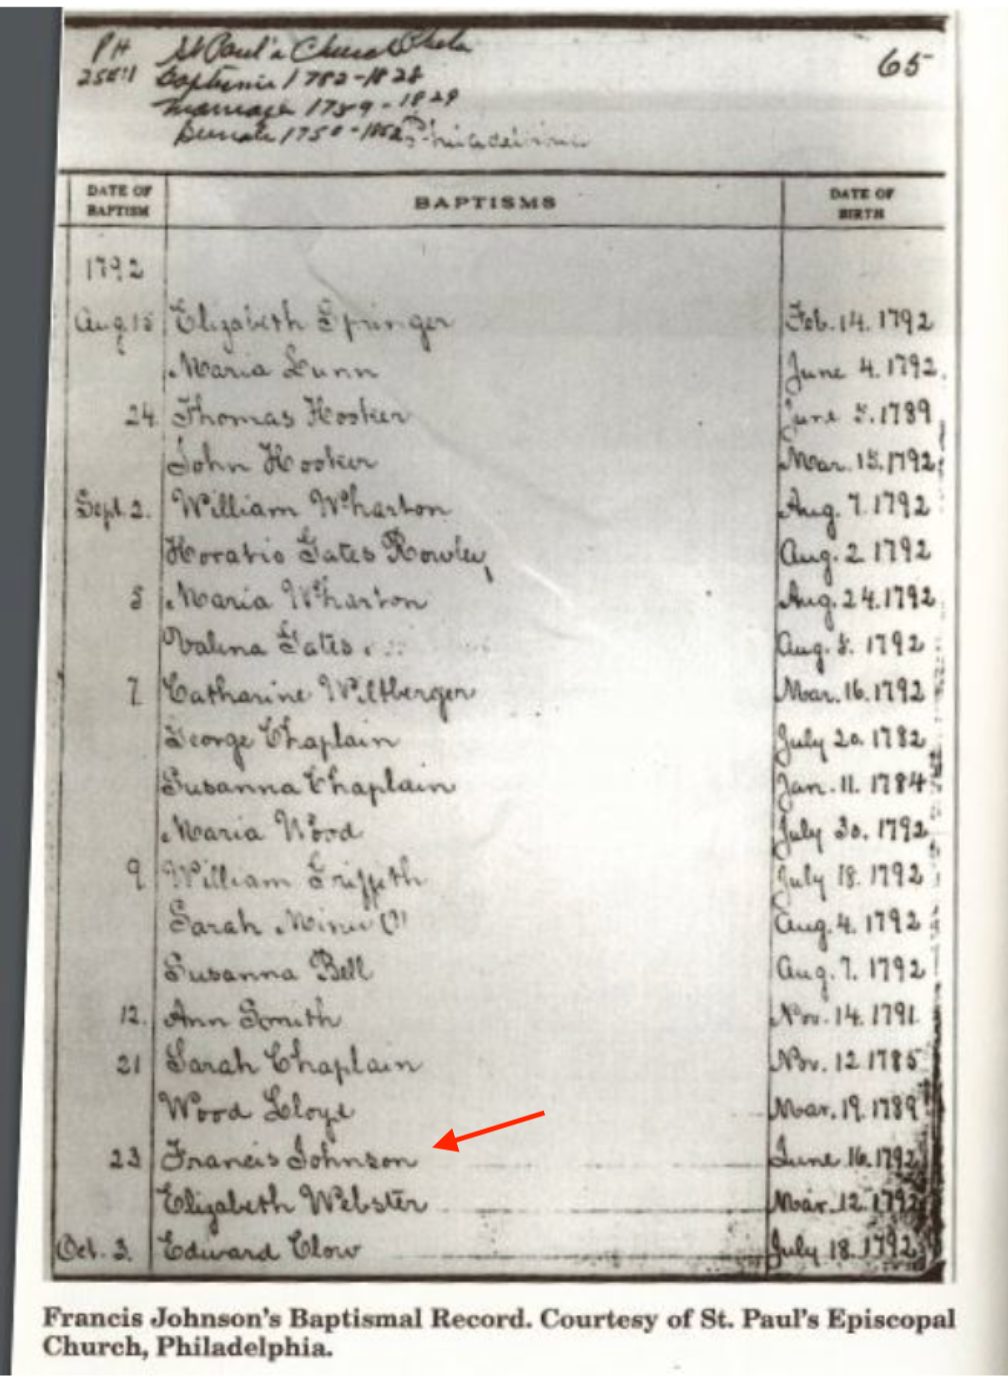 PH St Paul's Church Phila 65
25E11 Baptisms 1782-1828
marriage 1759-1829
Burials 1750-1852 Philadelphia
DATE OF BAPTISM BAPTISMS DATE OF BIRTH
1792
Aug. 15 Elizabeth Springer Feb. 14. 1792
Maria Lunn June 4. 1792.
24 Thomas Hooker June 5. 1789
John Hooker Mar. 15. 1792
Sept. 2. William Wharton Aug. 7. 1792
Horatio Gates Rowley Aug. 2 1792
5 Maria Wharton Aug. 24. 1792
Valina Gates Aug. 5. 1792
7 Catharine Wiltberger Mar. 16. 1792
George Chaplain July 20. 1782
Susanna Chaplain Jan. 11. 1784
Maria Wood July 30. 1792
9 William Griffith July 18. 1792
Sarah (?) Aug. 4. 1792
Susanna Bell Aug. 7. 1792
12. Ann Smith Nov. 14. 1791
21 Sarah Chaplain Nov. 12 1785
Wood Lloyd Mar. 19. 1789
23 Francis Johnson June 16. 1792
Elizabeth Webster Mar. 12. 1792
Oct. 3. Edward Clow July 18. 1792
Francis Johnson's Baptismal Record. Courtesy of St. Paul's Episcopal
Church, Philadelphia.